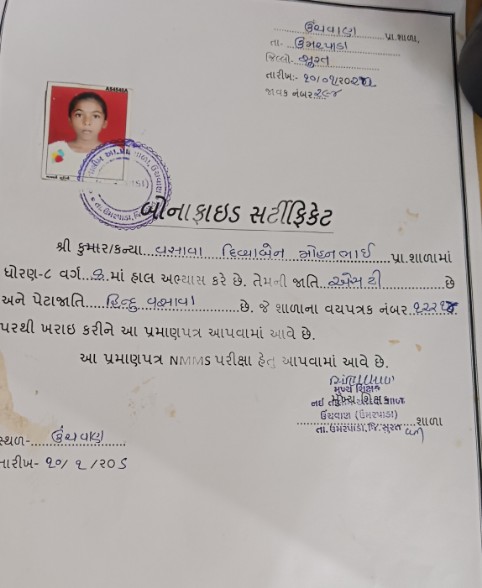 ઉંચવાણ પ્રા.શાળા,
તા. ઉમરપાડા
જિલ્લો. સુરત
તારીખ:- ૧૦/૦૧/૨૦૨
જાવક નંબર ૨૯૪
બોનાફાઇડ સર્ટીફિકેટ
શ્રી કુમાર/કન્યા વસાવા દિવ્યાબેન મોહનભાઈ પ્રા.શાળામાં
ધોરણ-૮ વર્ગ માં હાલ અભ્યાસ કરે છે. તેમની જાતિ એસ ટી છે
અને પેટાજાતિ હિન્દુ વસાવા છે. જે શાળાના વયપત્રક નંબર
પરથી ખરાઇ કરીને આ પ્રમાણપત્ર આપવામાં આવે છે.
આ પ્રમાણપત્ર NMMS પરીક્ષા હેતુ આપવામાં આવે છે.
મુખ્ય શિક્ષક
ઉંચવાણ (ઉમરપાડા)
શાળા
તા.ઉમરપાડા,જિ.સુરત
સ્થળ- ઉંચવાણ
તારીખ- ૧૦/ ૧ /૨૦